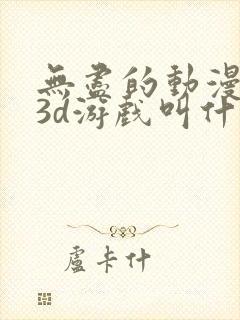 無盡的動漫
3d游戲叫什
盧卡什